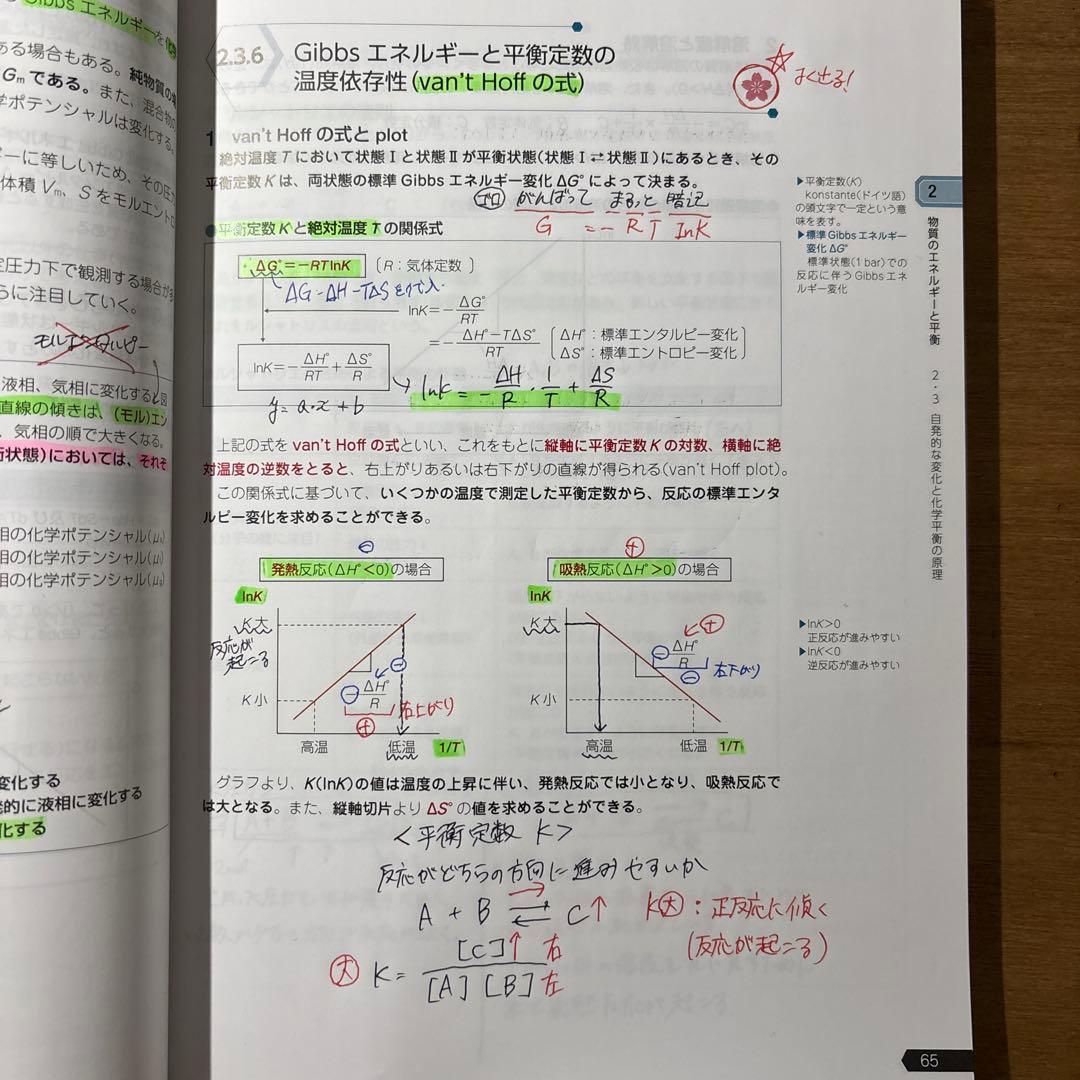 Gibbs エネルギーを
ある場合もある。純物質の
Gmである。また、混合物の
学ポテンシャルは変化する。
ギーに等しいため、その圧
体積 Vm、S をモルエントロ
定圧力下で観測する場合が多
らに注目していく。
モルエンタルピー
液相、気相に変化する
図
直線の傾きは、(モル)エン
、気相の順で大きくなる。
衡状態)においては、それぞ
相の化学ポテンシャル(μs)
相の化学ポテンシャル
相の化学ポテンシャル
変化する
発的に液相に変化する
化する
2.3.6 Gibbs エネルギーと平衡定数の
温度依存性(van't Hoff の式)
よくでる!
1 van't Hoff の式と plot
絶対温度 T において状態Ⅰと状態Ⅱが平衡状態(状態Ⅰ⇄状態Ⅱ)にあるとき、その
平衡定数 K は、両状態の標準 Gibbs エネルギー変化 ΔG° によって決まる。
ゴロ がんばって まるっと 暗記
G = − RT lnK
●平衡定数 K と絶対温度 T の関係式
ΔG°=−RTlnK (R:気体定数)
ΔG=ΔH−TΔS
lnK=−ΔG°/RT
=−(ΔH°−TΔS°)/RT
ΔH°:標準エンタルピー変化
ΔS°:標準エントロピー変化
lnK=−ΔH°/RT+ΔS°/R
lnK = −ΔH/R・1/T + ΔS/R
y = a・x + b
上記の式を van't Hoff の式といい、これをもとに縦軸に平衡定数 K の対数、横軸に絶
対温度の逆数をとると、右上がりあるいは右下がりの直線が得られる(van't Hoff plot)。
この関係式に基づいて、いくつかの温度で測定した平衡定数から、反応の標準エンタ
ルピー変化を求めることができる。
⊖
発熱反応(ΔH°<0)の場合
lnK
K 大
反応が
起こる
K 小
⊖
⊖−ΔH°/R
⊕
右上がり
高温
低温
1/T
⊕
吸熱反応(ΔH°>0)の場合
lnK
K 大
K 小
⊕
⊖−ΔH°/R
⊖
右下がり
高温
低温
1/T
グラフより、K(lnK)の値は温度の上昇に伴い、発熱反応では小となり、吸熱反応で
は大となる。また、縦軸切片より ΔS° の値を求めることができる。
<平衡定数 K>
反応がどちらの方向に進みやすいか
A + B ⇄ C↑
K大:正反応に傾く
(反応が起こる)
大 K = [C]↑右/[A][B]左
▶平衡定数(K)
konstante(ドイツ語)
の頭文字で一定という意
味を表す。
▶標準 Gibbs エネルギー
変化 ΔG°
標準状態(1 bar)での
反応に伴う Gibbs エネ
ルギー変化
▶lnK>0
正反応が進みやすい
▶lnK<0
逆反応が進みやすい
2
物質のエネルギーと平衡
2・3 自発的な変化と化学平衡の原理
65